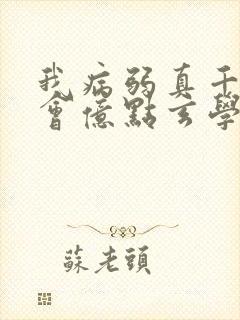 我病弱真千
會億點玄學
蘇老頭